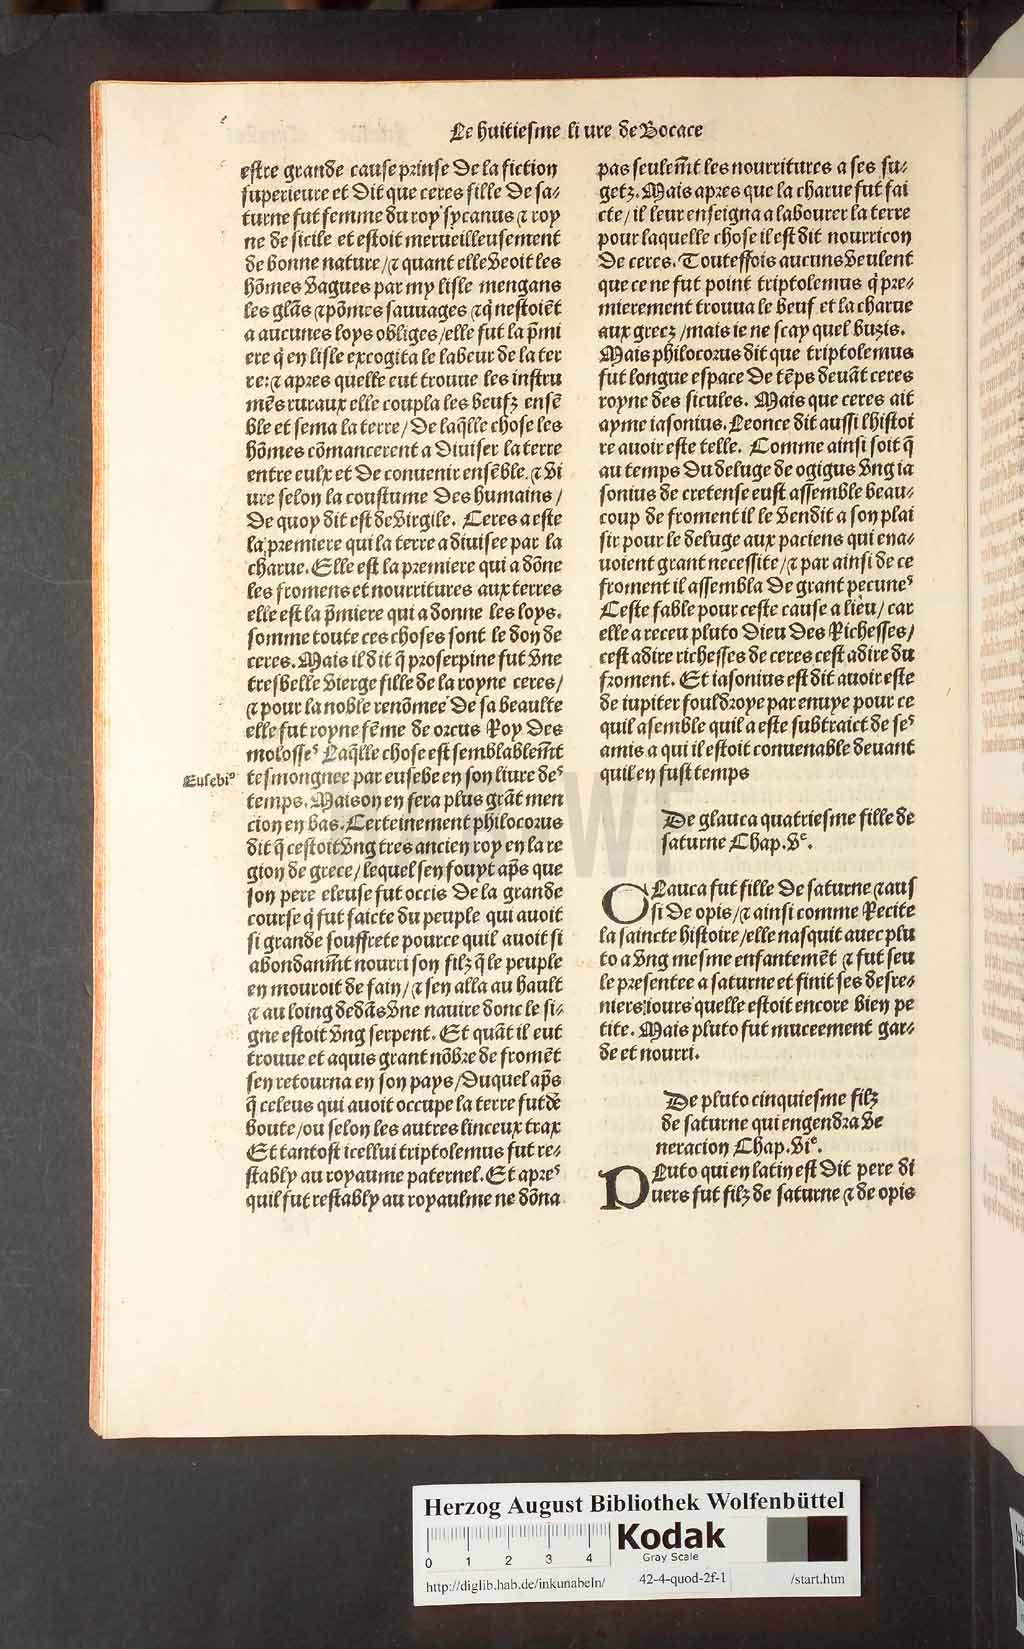 Le huitiesme li ure de Bocace
estre grande cause prinse De la fiction
superieure et Dit que ceres fille De sa⸗
turne fut femme du roy sycanus ⁊ roy
ne de sicile et estoit merueilleusement
de bonne nature/⁊ quant elle veoit les
hõmes vagues par my lisle mengans
les glãs ⁊põmes sauuages ⁊q̃ nestoiẽt
a aucunes loys obliges/elle fut la p̃mi
ere q̃ en lisle excogita le labeur de la ter
re:⁊ apres quelle eut trouue les instru
mẽs ruraux elle coupla les beufz ensẽ
ble et sema la terre/De laq̃lle chose les
hõmes cõmancerent a Diuiser la terre
entre eulx et De conuenir ensẽble ⁊ vi
ure selon la coustume Des humains/
De quoy dit est de virgile. Ceres a este
la premiere qui la terre a diuisee par la
charue. Elle est la premiere qui a dõne
les fromens et nourritures aux terres
elle est la p̃miere qui a donne les loys.
somme toute ces choses sont le don de
ceres. Mais il dit q̃ proserpine fut vne
tresbelle vierge fille de la royne ceres/
⁊ pour la noble renõmee De sa beaulte
elle fut royne fẽme de orcus Roy Des
molosseˢ Laq̃lle chose est semblablem̃t
Eusebi⁹
tesmongnee par eusebe en son liure deˢ
temps. Maison en fera plus grãt men
cion en bas. Certeinement philocorus
dit q̃ cestoit vng tres ancien roy en la re
gion de grece/lequel sen fouyt ap̃s que
son pere eleuse fut occis De la grande
course q̃ fut faicte du peuple qui auoit
si grande souffrete pource quil auoit si
abondanm̃t nourri son filz q̃ le peuple
en mouroit de fain/⁊ sen alla au hault
⁊ au loing dedãs vne nauire donc le si⸗
gne estoit vng serpent. Et quãt il eut
trouue et aquis grant nõbre de fromẽt
sen retourna en son pays/Duquel ap̃s
q̃ celeus qui auoit occupe la terre fut de
boute/ou selon les autres linceux trax
Et tantost icellui triptolemus fut re⸗
stably au royaume paternel. Et apreˢ
quil fut restably au royaulme ne dõna
pas seulem̃t les nourritures a ses su⸗
getz. Mais apres que la charue fut fai
cte/il leur enseigna a labourer la terre
pour laquelle chose il est dit nourricon
De ceres. Touteffois aucuns veulent
que ce ne fut point triptolemus q̃ pre⸗
mierement trouua le beuf et la charue
aux grecz/mais ie ne scay quel buzis.
Mais philocorus dit que triptolemus
fut longue espace De tẽps deuãt ceres
royne des sicules. Mais que ceres ait
ayme iasonius. Leonce dit aussi lhistoi
re auoir este telle. Comme ainsi soit q̃
au temps Du deluge de ogigus vng ia
sonius de cretense eust assemble beau⸗
coup de froment il le vendit a son plai
sir pour le deluge aux paciens qui ena⸗
uoient grant necessite/⁊ par ainsi de ce
froment il assembla De grant pecuneˢ
Ceste fable pour ceste cause a lieu/car
elle a receu pluto Dieu Des Richesses/
cest adire richesses de ceres cest adire du
froment. Et iasonius est dit auoir este
de iupiter fouldroye par enuye pour ce
quil asemble quil a este subtraict de seˢ
amis a qui il estoit conuenable deuant
quil en fust temps
De glauca quatriesme fille de
saturne Chap.vᵉ.
GLauca fut fille De saturne ⁊aus
si De opis/⁊ ainsi comme Recite
la saincte histoire/elle nasquit auec plu
to a vng mesme enfantemẽt ⁊ fut seu
le presentee a saturne et finit ses desre⸗
niers iours quelle estoit encore bien pe
tite. Mais pluto fut muceement gar⸗
de et nourri.
De pluto cinquiesme filz
de saturne qui engendra ve
neracion Chap.viᵉ.
PLuto qui en latin est Dit pere di
uers fut filz de saturne ⁊ de opis
HAB WF
Herzog August Bibliothek Wolfenbüttel
0 1 2 3 4
Kodak
Gray Scale
http://diglib.hab.de/inkunabeln/ 42-4-quod-2f-1 /start.htm